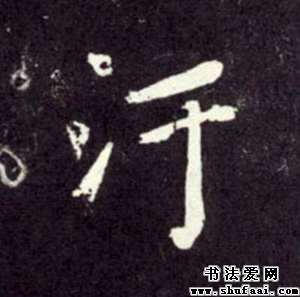 汙
书法爱网
www.shufaai.com